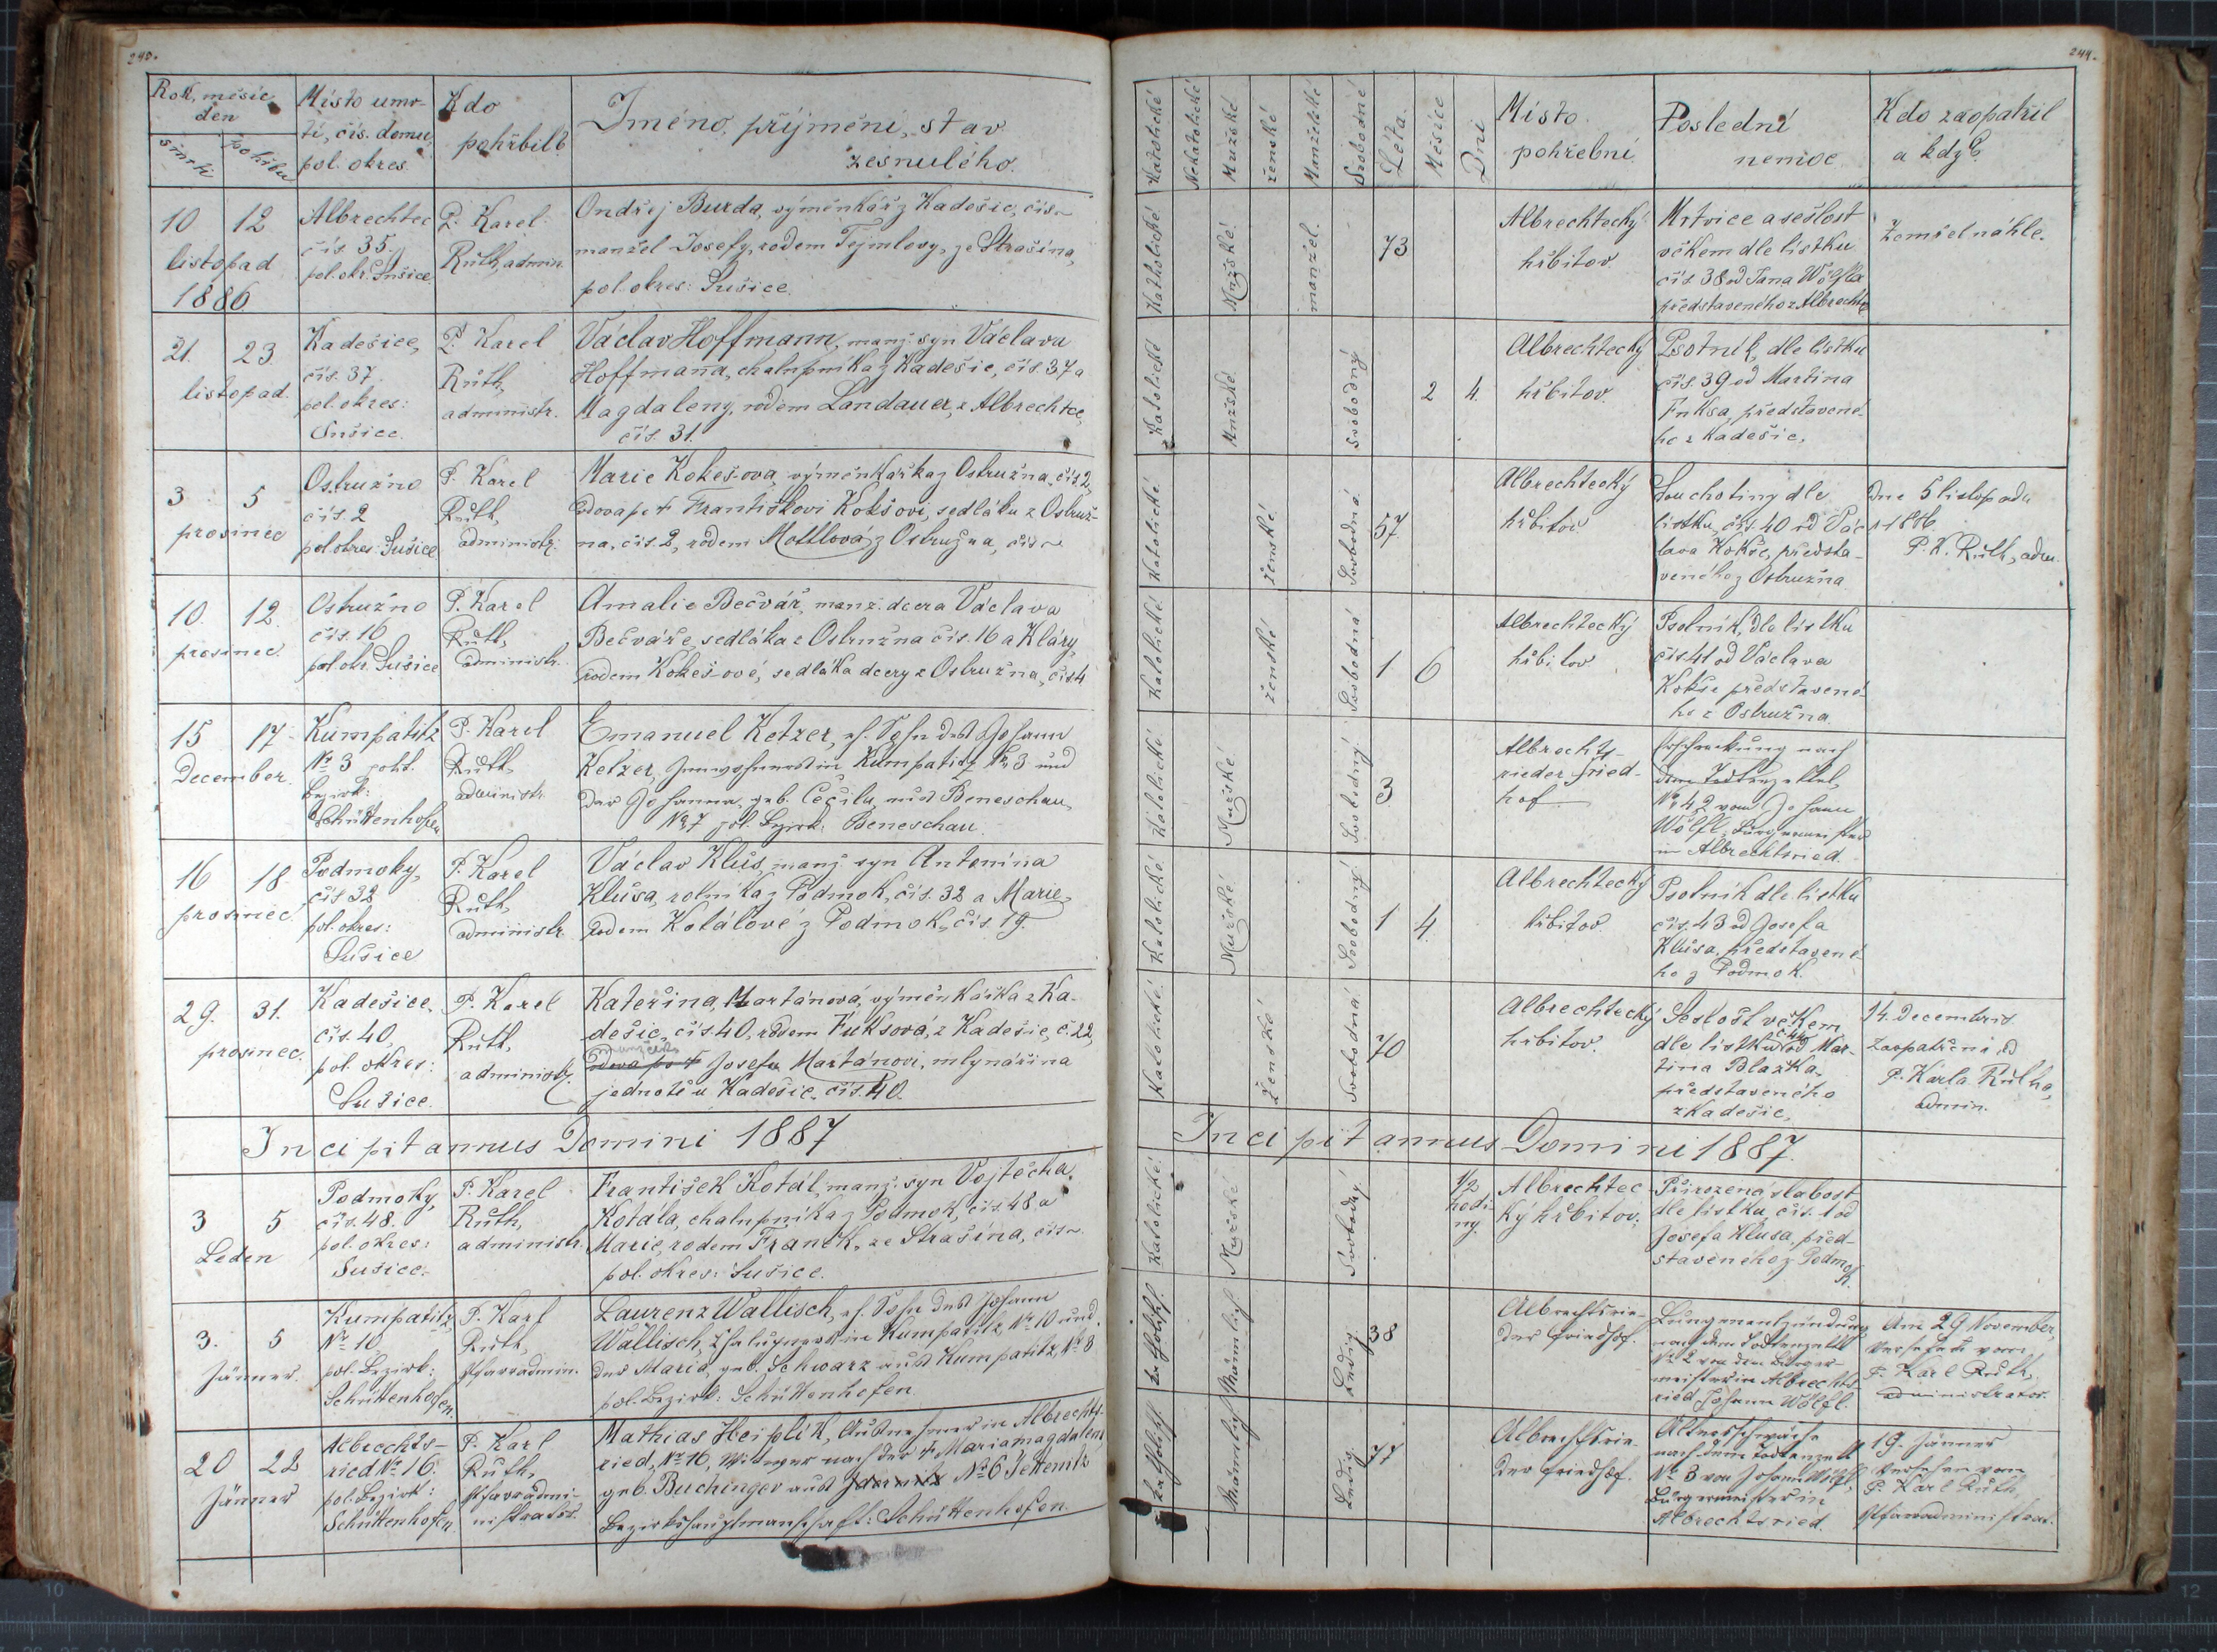 240.
Rok, měsíc
den
smrti
pohřbu
Místo umr-
tí, čís. domu,
pol. okres.
Kdo
pohřbil?
Jméno, příjmení, stav
zesnulého.
10 12
listopad
1886
Albrechtec
čís. 35
pol. okr. Sušice
P. Karel
Růth, admin.
Ondřej Burda, výměnkář z Kadešic, čís ~
manžel Josefy, rodem Tejmlovy, ze Strašína,
pol. okres: Sušice.
21. 23
listopad.
Kadešice,
čís. 37
pol. okres:
Sušice.
P. Karel
Růth,
administr.
Václav Hoffmann, manž. syn Václava
Hoffmaňa, chalupníka z Kadešic, čís. 37 a
Magdaleny, rodem Landauer, z Albrechtce,
čís. 31.
3 5
prosinec
Ostružno
čís. 2
pol. okres: Sušice
P. Karel
Růth,
administr.
Marie Kokeš-ova, výměnkářka z Ostružna, čís 2,
vdova po † Františkovi Kokšovi, sedláku z Ostruž-
na, čís. 2, rodem Mottlová z Ostružna, čís ~
10. 12.
prosinec.
Ostružno
čís. 16
pol. okr. Sušice
P. Karel
Růth,
administr.
Amalie Bečvář, manž. dcera Václava
Bečváře, sedláka z Ostružna čís. 16 a Kláry,
rodem Kokeš-ové, sedláka dcery z Ostružna, čís 4
15 17
December.
Kumpatitz
No 3 polit.
Bezirk:
Schüttenhofen
P. Karel
Růth,
administr.
Emanuel Ketzer, eh. Sohn des Johann
Ketzer, Inwohners in Kumpatitz No 3 und
der Johanna, geb. Cecila, aus Beneschau,
No 7 pol. Bezirk: Beneschau.
16 18
prosinec.
Podmoky,
čís 32
pol. okres:
Sušice
P. Karel
Růth,
administr.
Václav Klůs, manž. syn Antonína
Klůsa, rolníka z Podmok, čís. 32 a Marie,
rodem Kotálové z Podmok, čís. 19.
29. 31.
prosinec.
Kadešice,
čís. 40,
pol. okres:
Sušice.
P. Karel
Růth,
administr.
Kateřina Martánová, výměnkářka z Ka-
dešic, čís. 40, rodem Fuksová, z Kadešic, č. 22,
manželka
vdova po † Josefa Martánovi, mlynářina
jednotě u Kadešic, čís. 40.
Incipit annus Domini 1887
3 5
Leden
Podmoky,
čís. 48.
pol. okres:
Sušice.
P. Karel
Růth,
administr.
František Kotál, manž. syn Vojtěcha
Kotala, chalupníka z Podmok, čís. 48 a
Marie, rodem Franěk, ze Strašína, čís ~
pol. okres: Sušice.
3. 5
Jänner.
Kumpatitz,
No 10
pol. Bezirk:
Schüttenhofen.
P. Karl
Růth,
Pfarradmin.
Laurenz Wallisch, eh. Sohn des Johann
Wallisch, Chalupners in Kumpatitz, No 10 und
der Maria, geb. Schwarz aus Kumpatitz, No 8
pol. Bezirk: Schüttenhofen.
20 22
Jänner
Albrechts-
ried No 16.
pol. Bezirk:
Schüttenhofen.
P. Karl
Růth,
Pfarradmi-
nistrator.
Mathias Heiplik, Ausnehmer in Albrechts-
ried, No 16, Witwer nach der † Mariamagdalena
geb. Buchinger aus No 6 Jettenitz
Bezirkshauptmanschaft: Schüttenhofen.
244.
Katolické
Nekatolické
Mužské
ženské
Manželské
Svobodné
Léta.
Měsíce
Dni
Místo
pohřební.
Poslední
nemoc.
Kdo zaopatřil
a kdy?
Katholické
Mužské.
manžel.
73
Albrechtecký
hřbitov.
Mrtvice a sešlost
věkem dle lístku
čís. 38 od Jana Wölfla
představeného z Albrechtce
Zemřel náhle.
Katolické
Mužské.
Svobodný
2 4.
Albrechtecký
hřbitov.
Psotník, dle lístku
čís. 39 od Martina
Fuksa, představené-
ho z Kadešic.
Katolické
ženské.
Svobodná.
57
Albrechtecký
hřbitov
Souchotiny dle
lístku, čís. 40 od Vác-
lava Kokše, předsta-
veného z Ostružna
Dne 5 listopadu
1886
P. K. Růth, adm.
Katolické
ženské
Svobodná
1 6
Albrechtecký
hřbitov
Psotník, dle lístku
čís 41 od Václava
Kokše představené-
ho z Ostružna.
Katolické
Mužské
Svobodný
3
Albrechts-
rieder Fried-
hof.
nach
dem Todtenzettel,
No 42 vom Johann
Wölfl, Bürgermeister
in Albrechtsried.
Katolické
Mužské.
Svobodný.
1 4.
Albrechtecký
hřbitov.
Psotník dle lístku
čís. 43 od Josefa
Klůsa, představené-
ho z Podmok.
Katolické.
ženské
Svobodná
70
Albrechtecký
hřbitov.
Sešlost věkem
dle lístku č. 44 od Mar-
tina Blažka,
představeného
z Kadešic.
14. Decembris
zaopatření od
P. Karla Růtha,
admin.
Incipit annus Domini 1887.
Katolické
Mužské
Svobodný.
1/2
hodi-
ny.
Albrechtec-
ký hřbitov.
Přirozená slabost,
dle lístku, čís. 1 od
Josefa Klusa, před-
staveného z Podmok
Katholisch.
Männlich
Ledig.
38
Albrechtsrie-
der Friedhof.
Lungenentzündung
nach dem Todtenzettel
No 2 von dem Bürger-
meister in Albrechts-
ried Johann Wölfl.
Am 29 November,
versehen vom
P. Karl Růth,
administrator.
Katholisch
Männlich
Ledig.
77
Albrechtsrie-
der Friedhof.
Altersschwäche
nach dem Todtenzettl
No 3 von Johann Wölfl,
Bürgermeister in
Albrechtsried.
19. Jänner
versehen vom
P. Karl Růth,
Pfarradministrat.